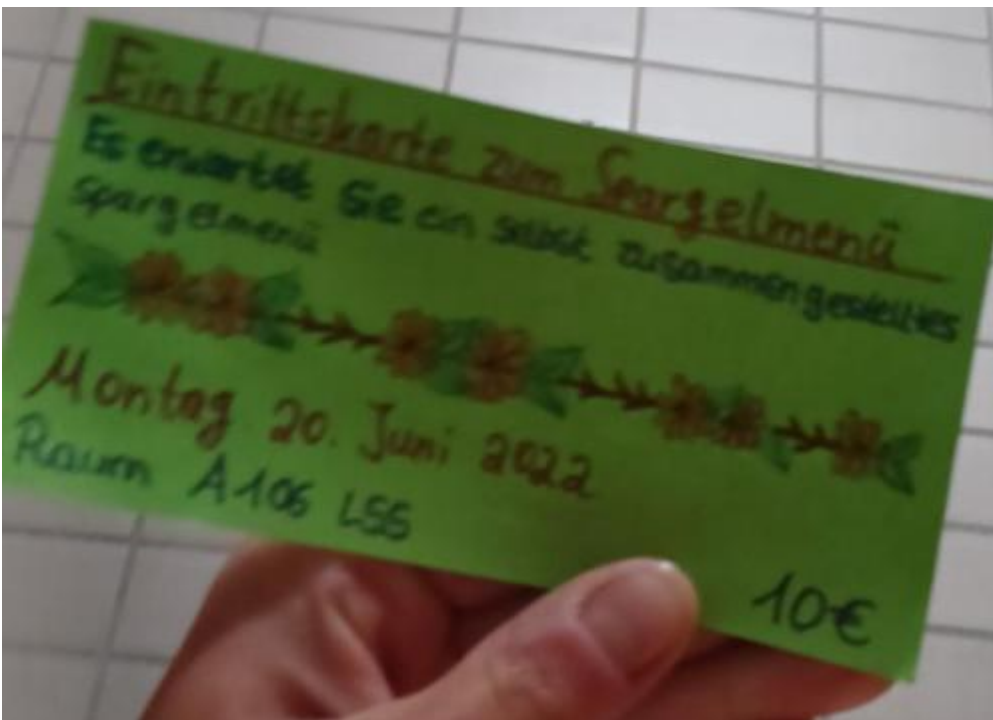 Eintrittskarte zum Spargelmenü
Es erwartet Sie ein selbst zusammengestelltes
spargelmenü
Montag 20. Juni 2022
Raum A106 LSS
10€